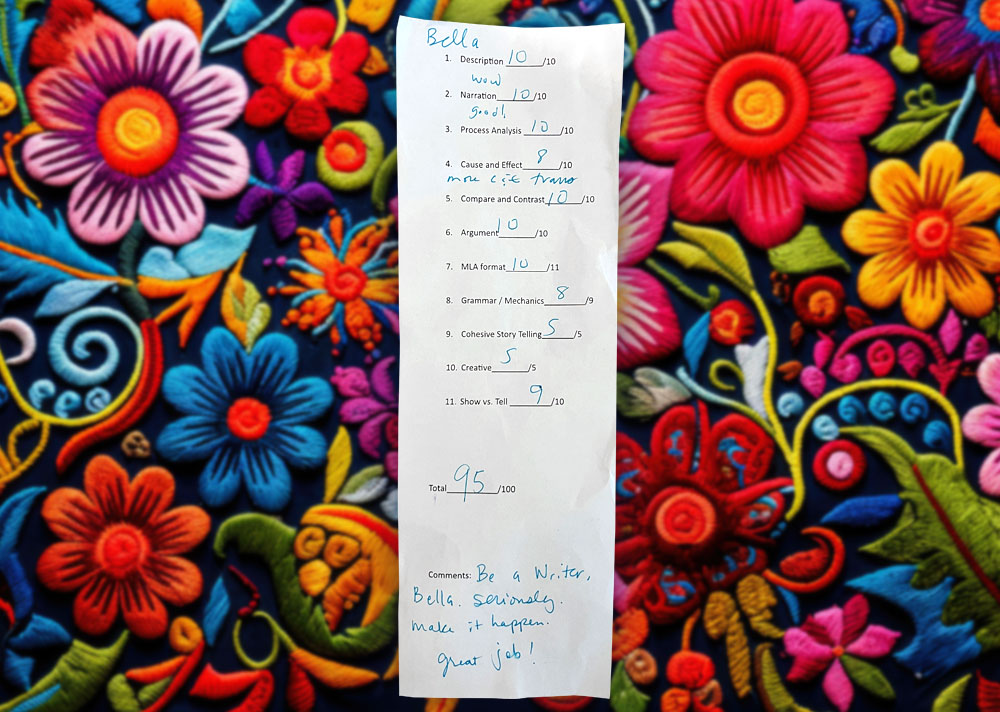 Bella
1. Description 10/10
wow
2. Narration 10/10
good!
3. Process Analysis 10/10
4. Cause and Effect 8/10
more c & E trans
5. Compare and Contrast 10/10
6. Argument 10/10
7. MLA format 10/11
8. Grammar / Mechanics 8/9
9. Cohesive Story Telling 5/5
10. Creative 5/5
11. Show vs. Tell 9/10
Total 95/100
Comments: Be a Writer,
Bella. Seriously.
Make it happen.
great job!